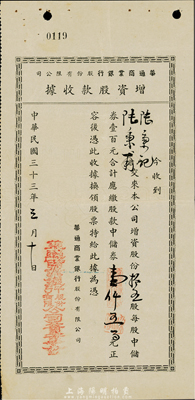 0119
華通商業銀行股份有限公司
增資股款收據
今收到
陸東記
交來本公司增資股份拾五股每股中儲
券壹百元合計應繳股款中儲券壹仟五百元正
容後憑此收據換領股票特給此據為憑
華通商業銀行股份有限公司
中華民國三十三年三月十日